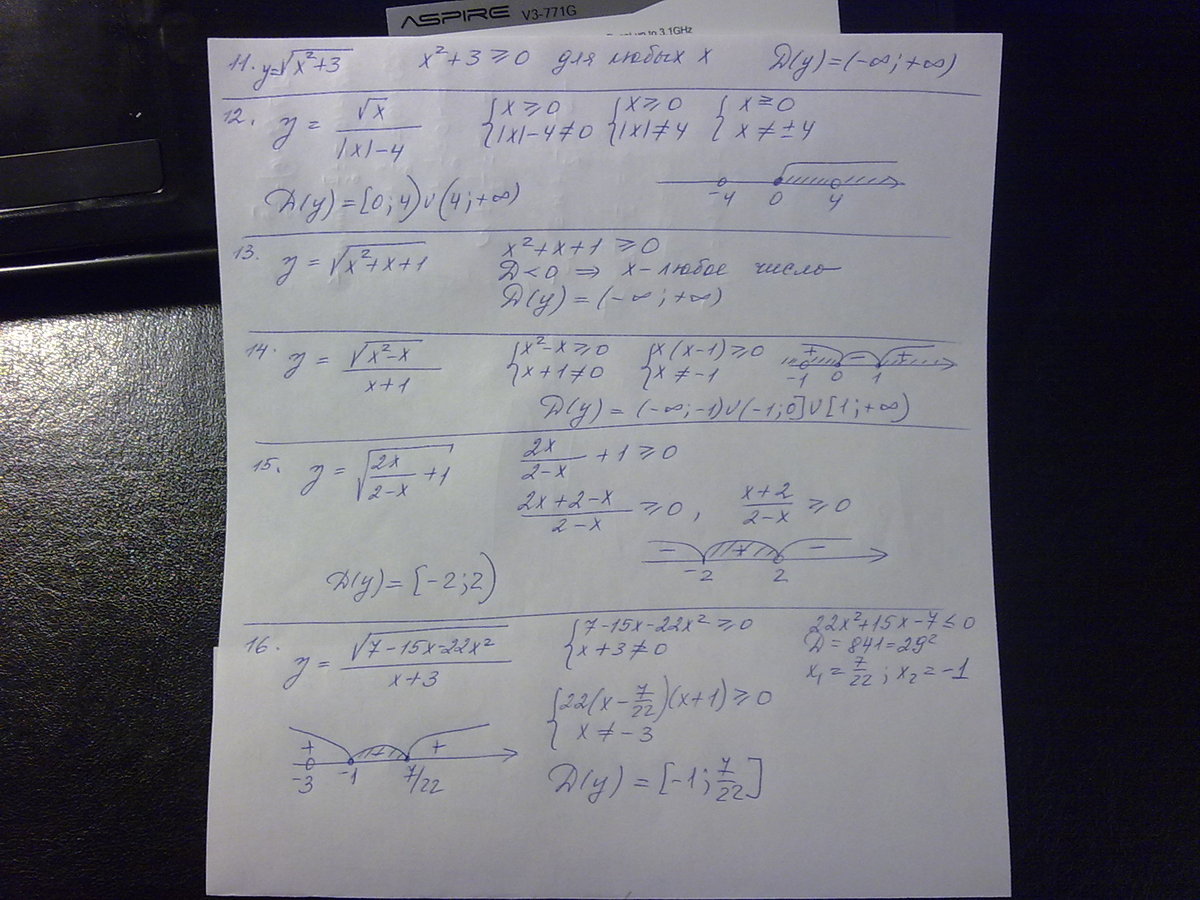 ASPIRE V3-771G
11. y=√(x²+3) x²+3⩾0 для любых x D(y)=(-∞;+∞)
12. y = √x / (|x|-4) {x⩾0 {x⩾0 {x≥0
{|x|-4≠0 {|x|≠4 {x≠±4
-4 0 4
D(y)=[0;4)∪(4;+∞)
13. y=√(x²+x+1) x²+x+1⩾0
D<0 ⇒ x-любое число
D(y)=(-∞;+∞)
14. y = √(x²-x) / (x+1) {x²-x⩾0 {x(x-1)⩾0 + - +
{x+1≠0 {x≠-1 -1 0 1
D(y)=(-∞;-1)∪(-1;0]∪[1;+∞)
15. y = √(2x/(2-x) +1) 2x/(2-x) +1⩾0
(2x+2-x)/(2-x) ⩾0, (x+2)/(2-x) ⩾0
- + -
-2 2
D(y)=[-2;2)
16. y = √(7-15x-22x²) / (x+3) {7-15x-22x²⩾0 22x²+15x-7≤0
{x+3≠0 D=841=29²
x₁=7/22; x₂=-1
{22(x-7/22)(x+1)⩾0
{x≠-3
+ - +
-3 -1 7/22
D(y)=[-1;7/22]